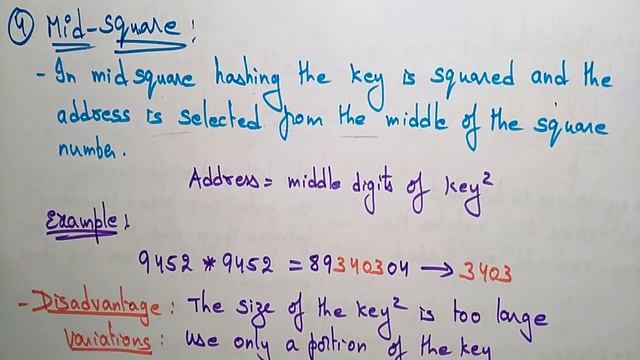 ④ Mid-Square :
- In midsquare hashing the key is squared and the
address is selected from the middle of the square
number.
Address = middle digits of key²
Example :
9452 * 9452 = 89340304 → 3403
- Disadvantage : The size of the key² is too large
Variations : use only a portion of the key